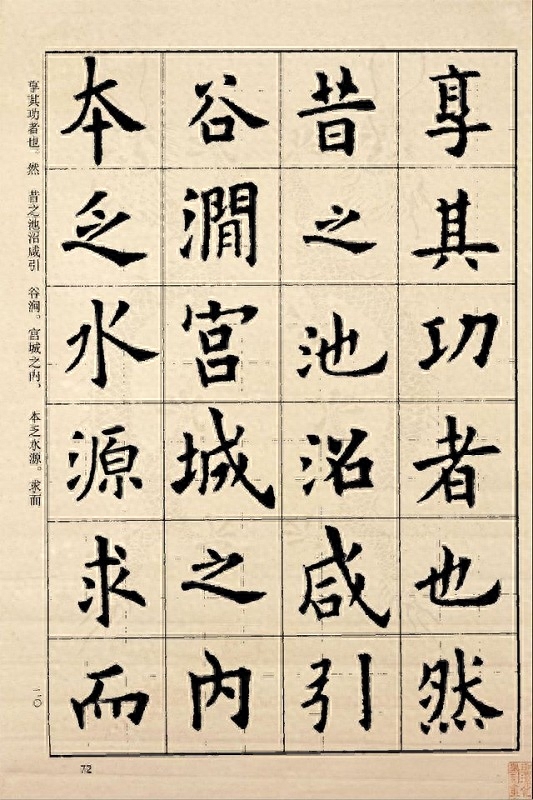 享其功者也然
昔之池沼咸引
谷澗宮城之内
本乏水源求而
享其功者也。然 昔之池沼咸引 谷涧。宫城之内、 本乏水源。求而
二〇
72